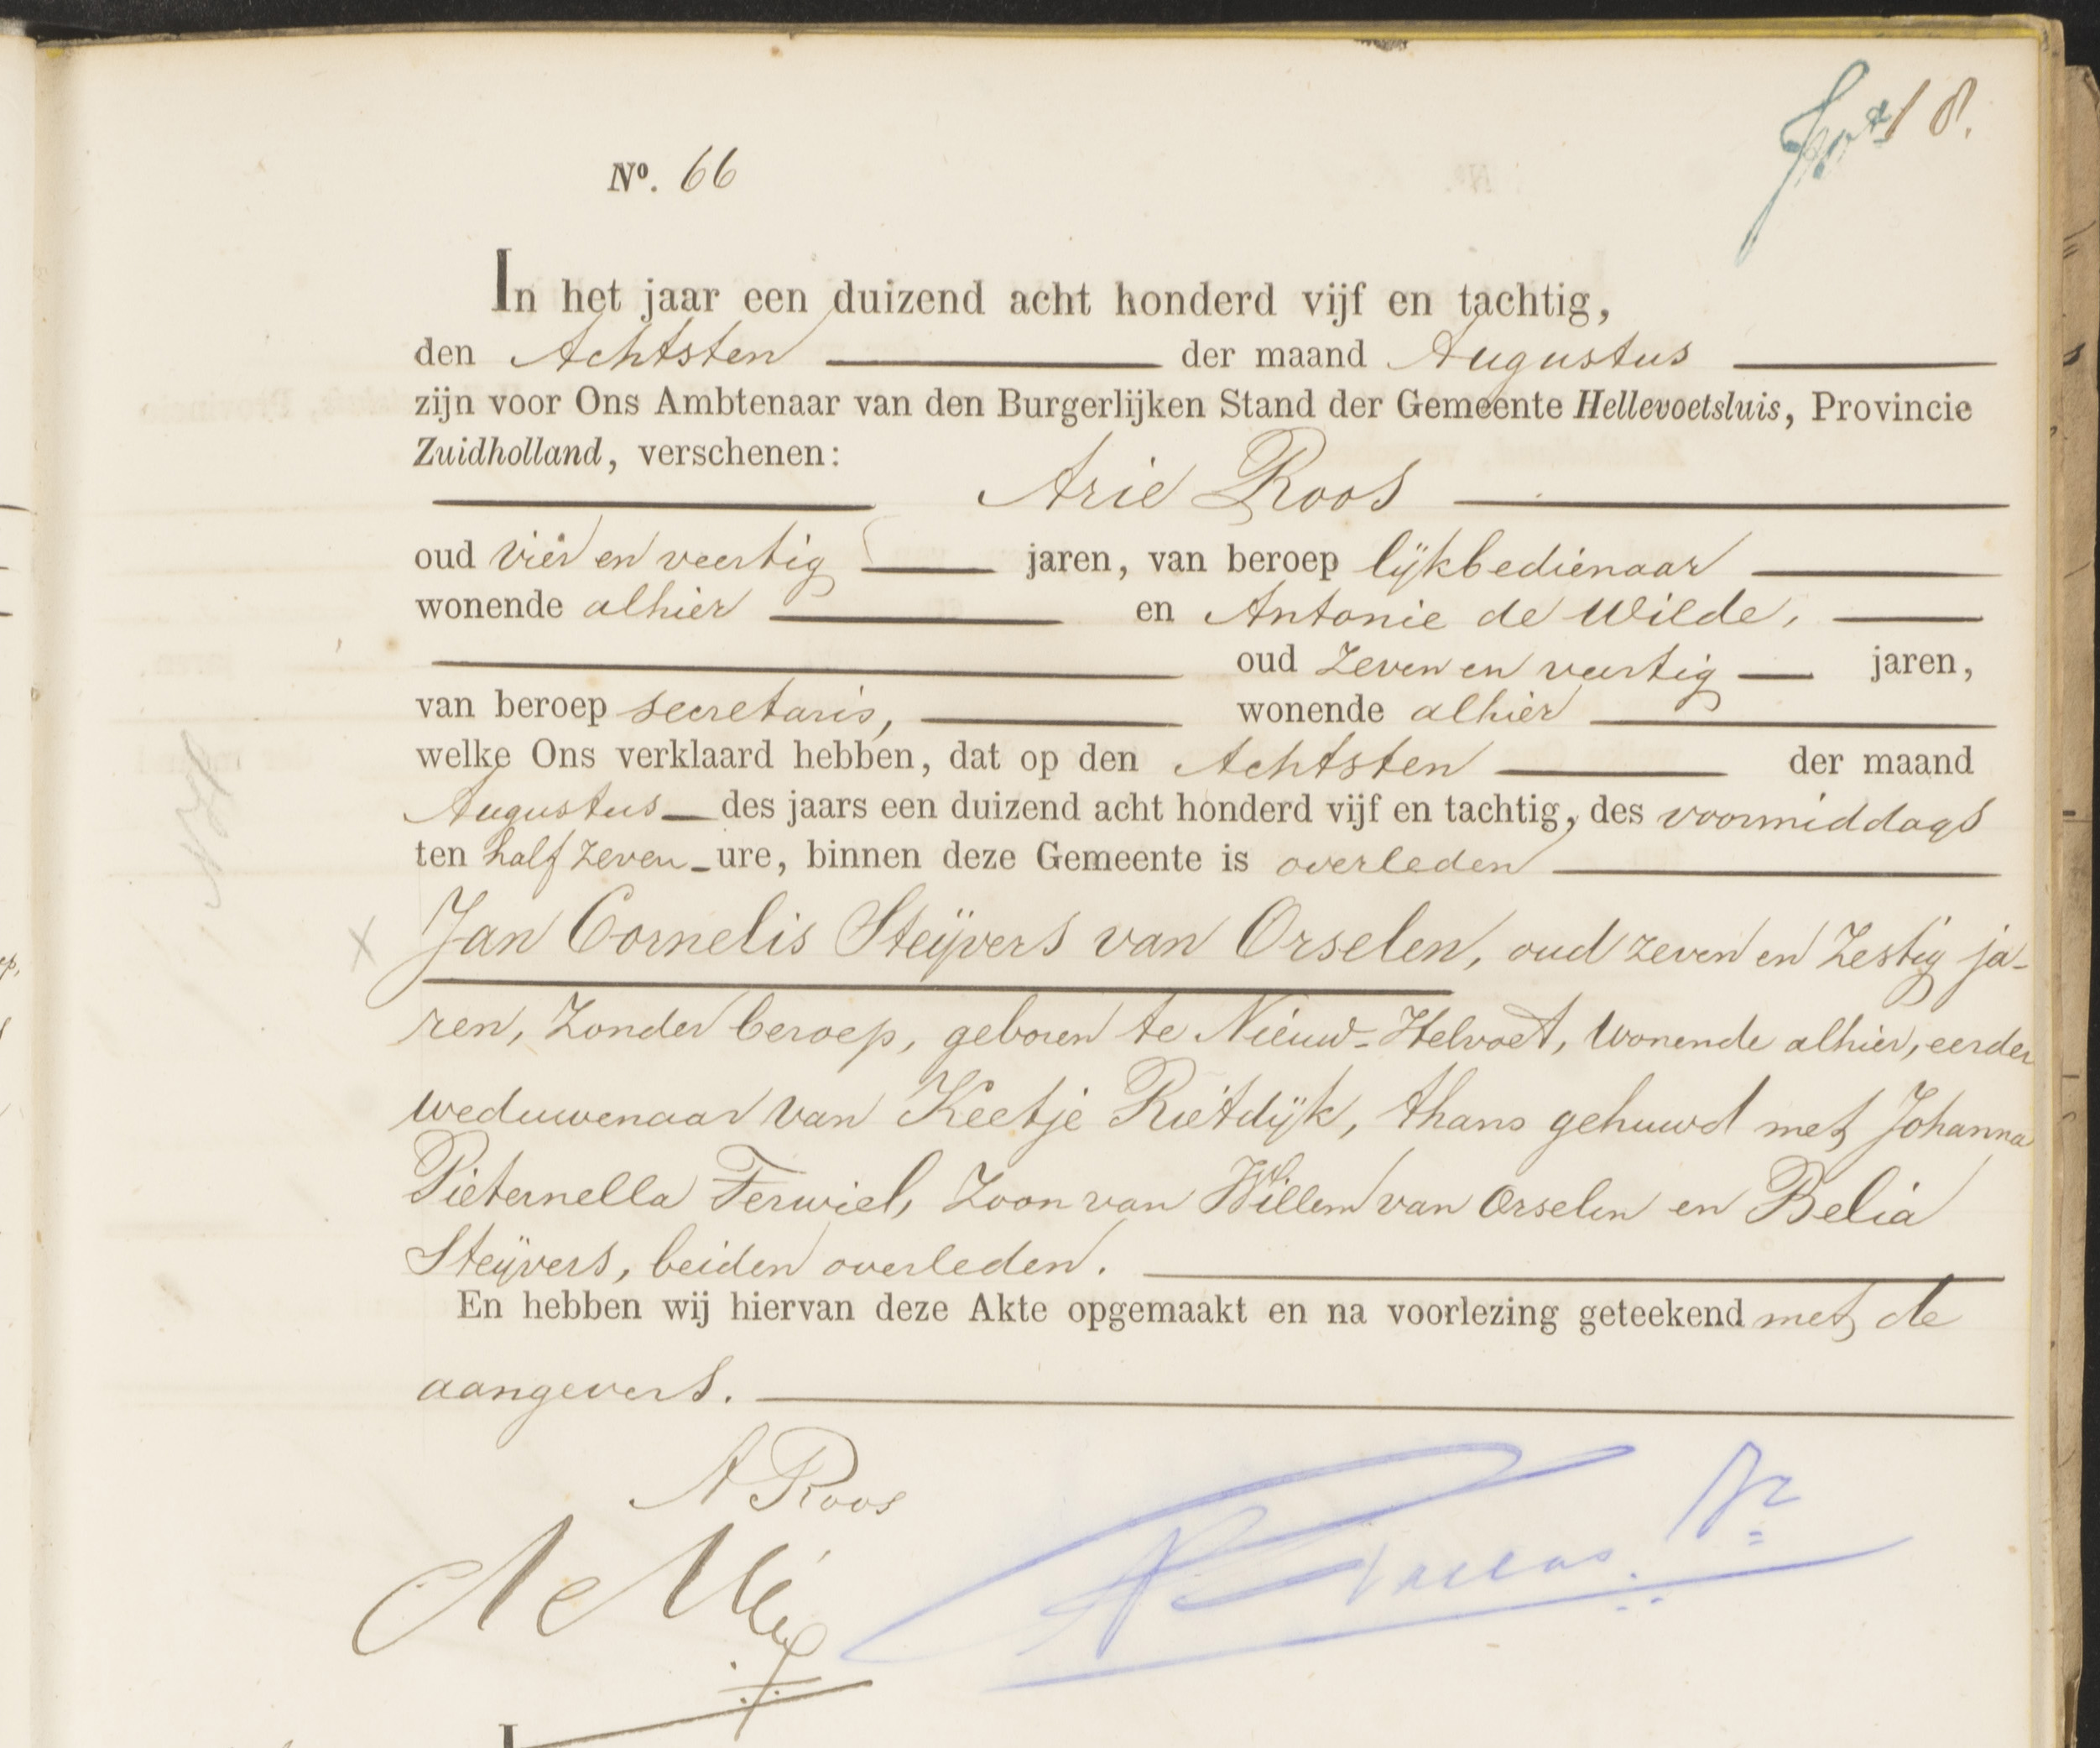 18.
Nº. 66
In het jaar een duizend acht honderd vijf en tachtig,
den Achtsten der maand Augustus
zijn voor Ons Ambtenaar van den Burgerlijken Stand der Gemeente Hellevoetsluis, Provincie
Zuidholland, verschenen:
Arie Roos
oud vier en veertig jaren, van beroep lijkbedienaar
wonende alhier en Antonie de Wilde,
oud zeven en veertig jaren,
van beroep secretaris, wonende alhier
welke Ons verklaard hebben, dat op den Achtsten der maand
Augustus des jaars een duizend acht honderd vijf en tachtig, des voormiddags
ten half zeven ure, binnen deze Gemeente is overleden
x Jan Cornelis Steijvers van Orselen, oud zeven en zestig ja-
ren, zonder beroep, geboren te Nieuw-Helvoet, wonende alhier, eerder
weduwenaar van Keetje Rietdijk, thans gehuwd met Johanna
Pieternella Terwiel, zoon van Willem van Orselen en Belia
Steijvers, beiden overleden.
En hebben wij hiervan deze Akte opgemaakt en na voorlezing geteekend met de
aangevers.
A Roos